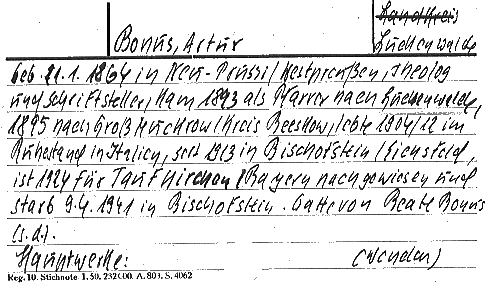 Landkreis
Bonus, Artur Luckenwalde
geb. 21.1.1864 in Neu-Prussi/Westpreußen, Theolog
und Schriftsteller, kam 1893 als Pfarrer nach Luckenwalde,
1895 nach Groß Muckrow/Kreis Beeskow, lebte 1904/12 im
Ruhestand in Italien, seit 1913 in Bischofstein/Eichsfeld,
ist 1924 für Taufkirchen/Bayern nachgewiesen und
starb 9.4.1941 in Bischofstein. Gatte von Beate Bonus
(s.d.).
Hauptwerke: (Wenden)
Reg. 10. Stichnote 1. 50. 232 000. A. 803. S. 4062